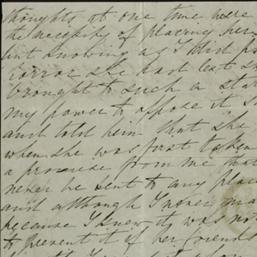 thoughts at one time were
the necessity of placing her
but knowing as I did
horror she had lest s
brought to such a stat
my power to oppose it
and told him that she
when she was first taken
a promise from me that
never be sent to any plac
and although I never ma
because I knew it was not
to prevent it if her friends